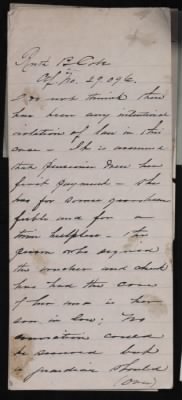 Ruth B Cole
Cf. No. 29.096.
I do not think there
has been any intentional
violation of law in this
case - It is assumed
that pensioner drew her
first payment - She
has for some years been
feeble and for a
time helpless - the
person who signed
the voucher and check
has had the care
of her and is her
son in law; No
conviction could
be secured but
a guardian should
(over)